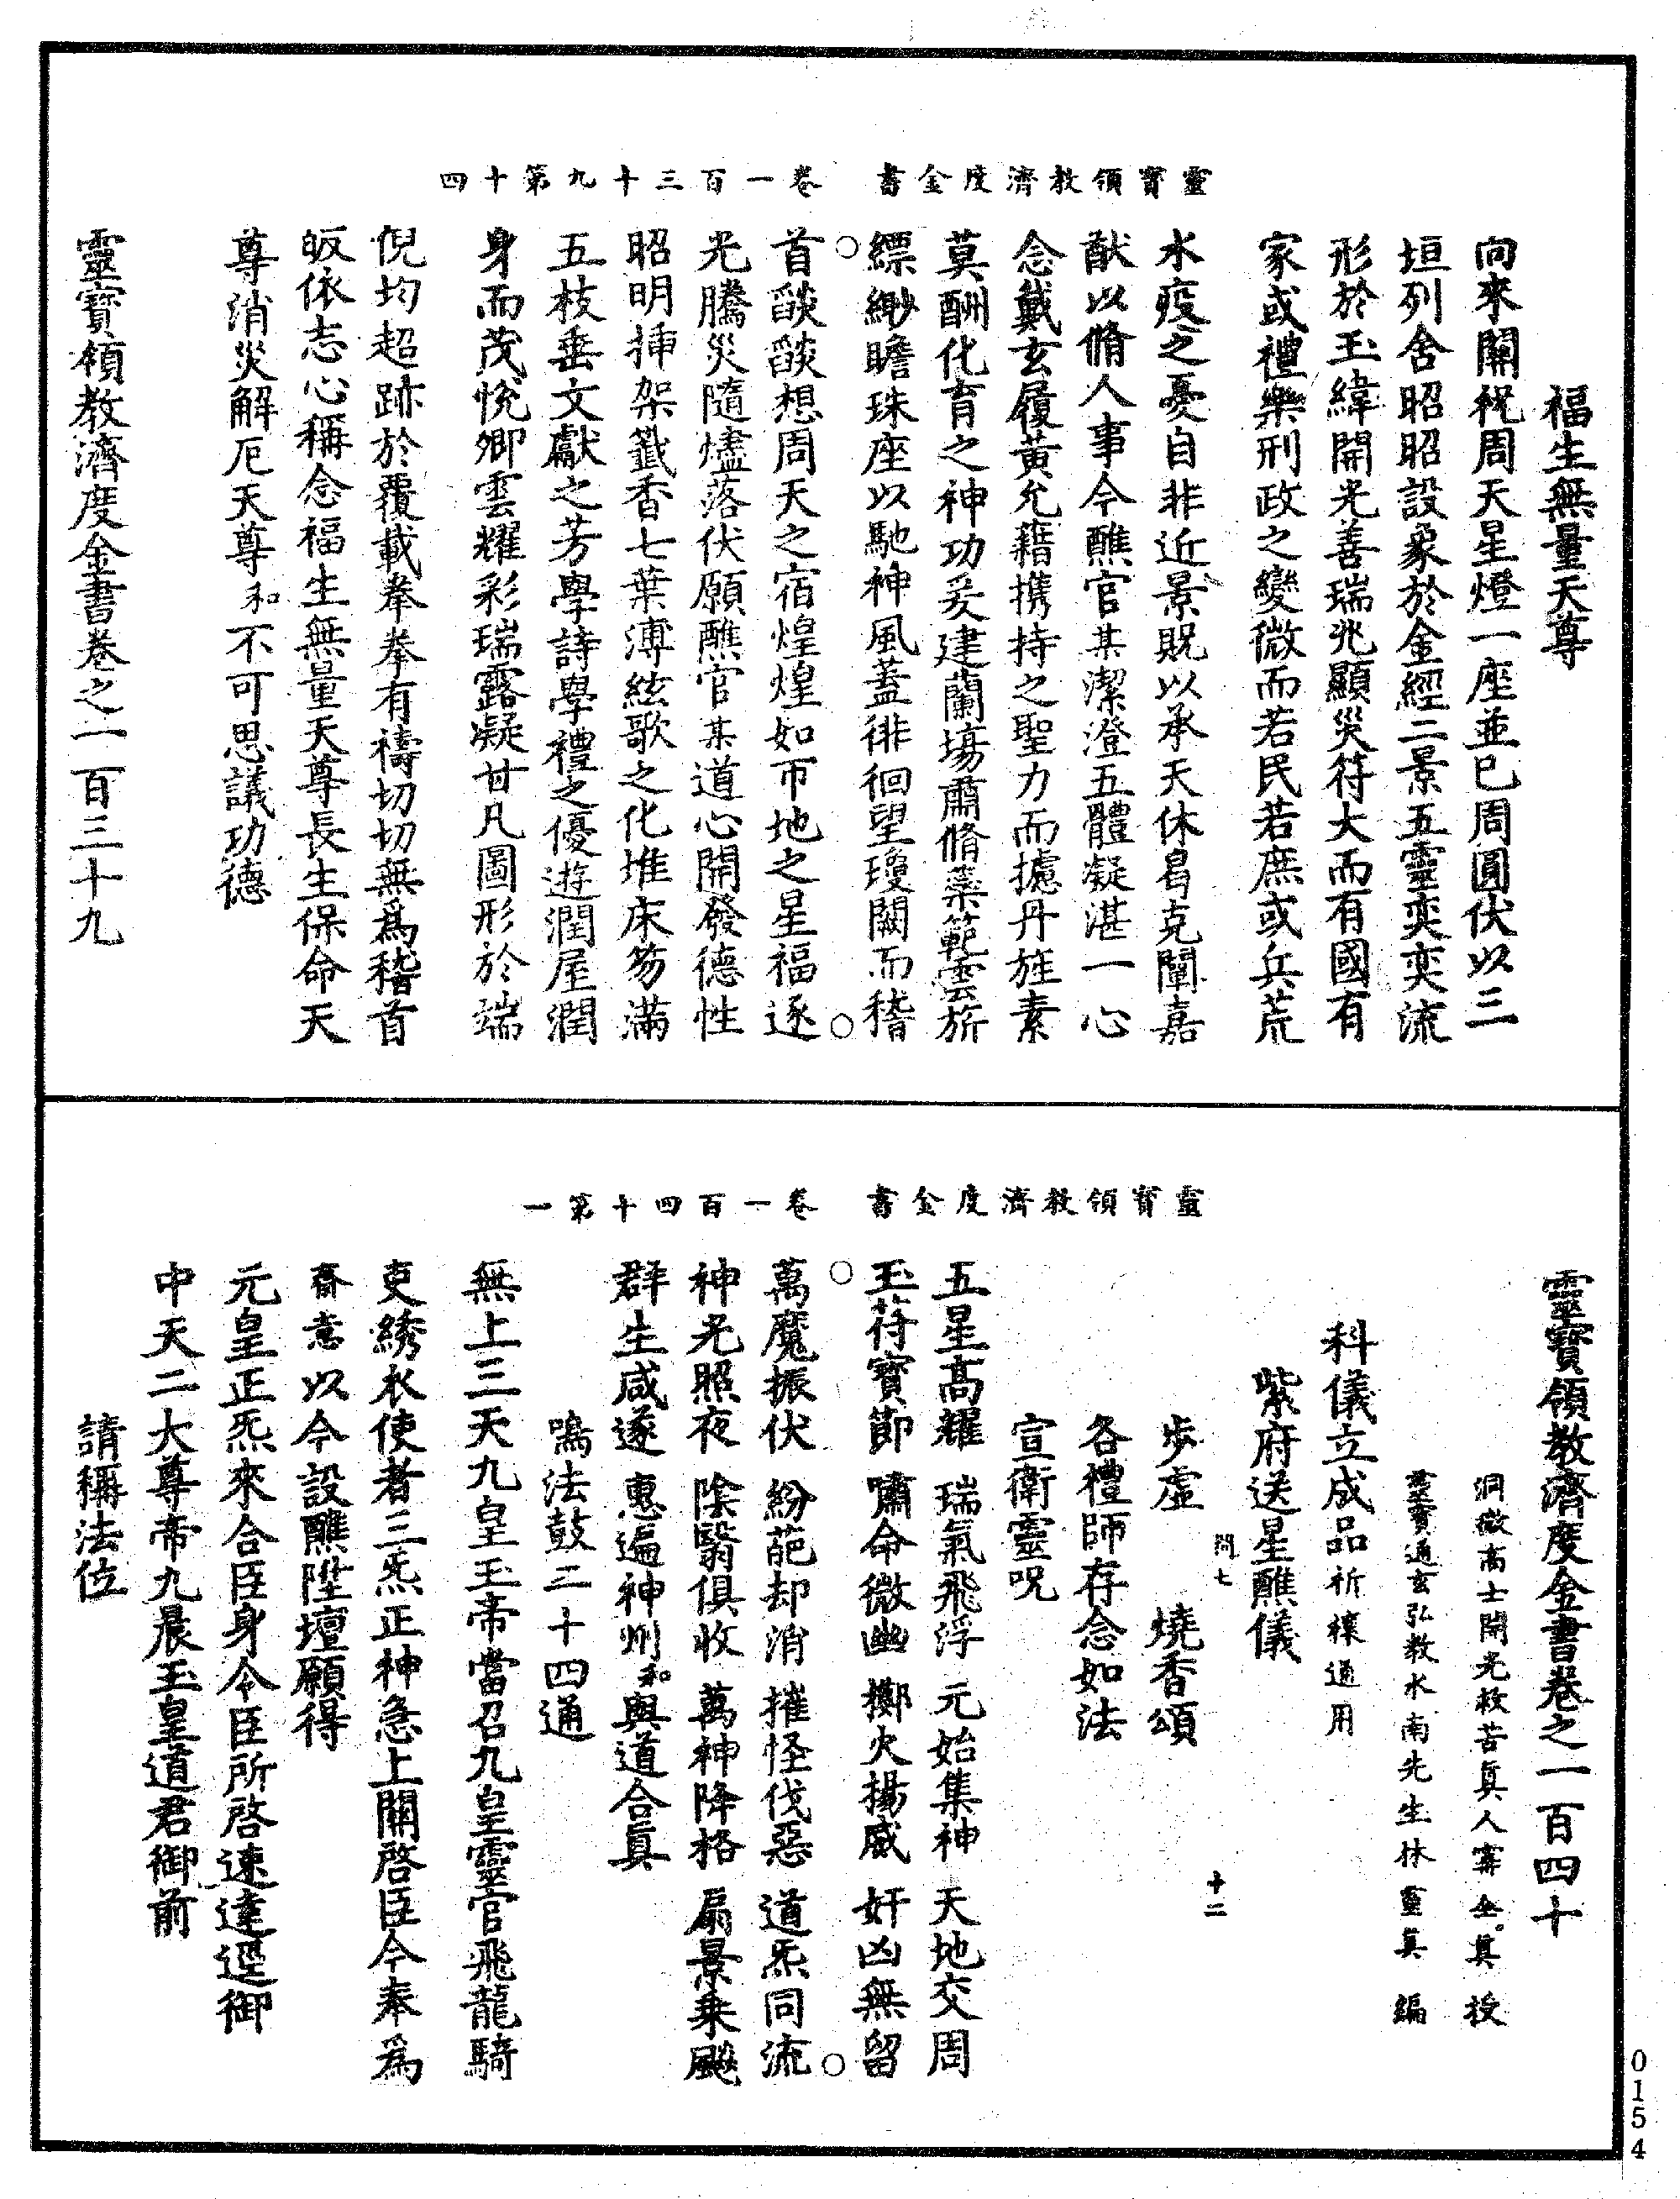 靈寶領教濟度金書　卷一百三十九第十四
福生無量天尊
向來關祝周天星燈一座並已周圓伏以三
垣列舍昭昭設象於金經二景五靈奕奕流
形於玉緯開光善瑞兆顯災符大而有國有
家或禮樂刑政之變微而若民若庶或兵荒
水疫之憂自非近景貺以承天休曷克闡嘉
猷以脩人事今醮官某潔澄五體凝湛一心
念戴玄履黃允藉攜持之聖力而攄丹旌素
莫酬化育之神功爰建蘭場肅脩藥範雲旂
縹緲瞻珠座以馳神風蓋徘徊望瓊闕而稽
首燄燄想周天之宿煌煌如帀地之星福逐
光騰災隨燼落伏願醮官某道心開發德性
昭明挿架籤香七葉溥絃歌之化堆床笏滿
五枝垂文獻之芳學詩學禮之優遊潤屋潤
身而茂悅卿雲耀彩瑞露凝甘凡圖形於端
倪均超跡於覆載拳拳有禱切切無爲稽首
皈依志心稱念福生無量天尊長生保命天
尊消災解厄天尊和不可思議功德
靈寶領教濟度金書卷之一百三十九
靈寶領教濟度金書　卷一百四十第一
靈寶領教濟度金書卷之一百四十
洞微高士開光救苦眞人寗全眞授
靈寶通玄弘教水南先生林靈眞編
科儀立成品祈禳通用
紫府送星醮儀
問七　十二
步虛　燒香頌
各禮師存念如法
宣衛靈呪
五星高耀　瑞氣飛浮　元始集神　天地交周
玉符寶節　嘯命微幽　擲火揚威　奸凶無留
萬魔振伏　紛葩却消　摧怪伐惡　道炁同流
神光照夜　陰翳俱收　萬神降格　扇景乗飈
群生咸遂　惠遍神州和與道合眞
鳴法鼓二十四通
無上三天九皇玉帝當召九皇靈官飛龍騎
吏綉衣使者三炁正神急上關啓臣今奉爲
齋意以今設醮陞壇願得
元皇正炁來合臣身令臣所啓速達逕御
中天二大尊帝九晨玉皇道君御前
請稱法位
0154